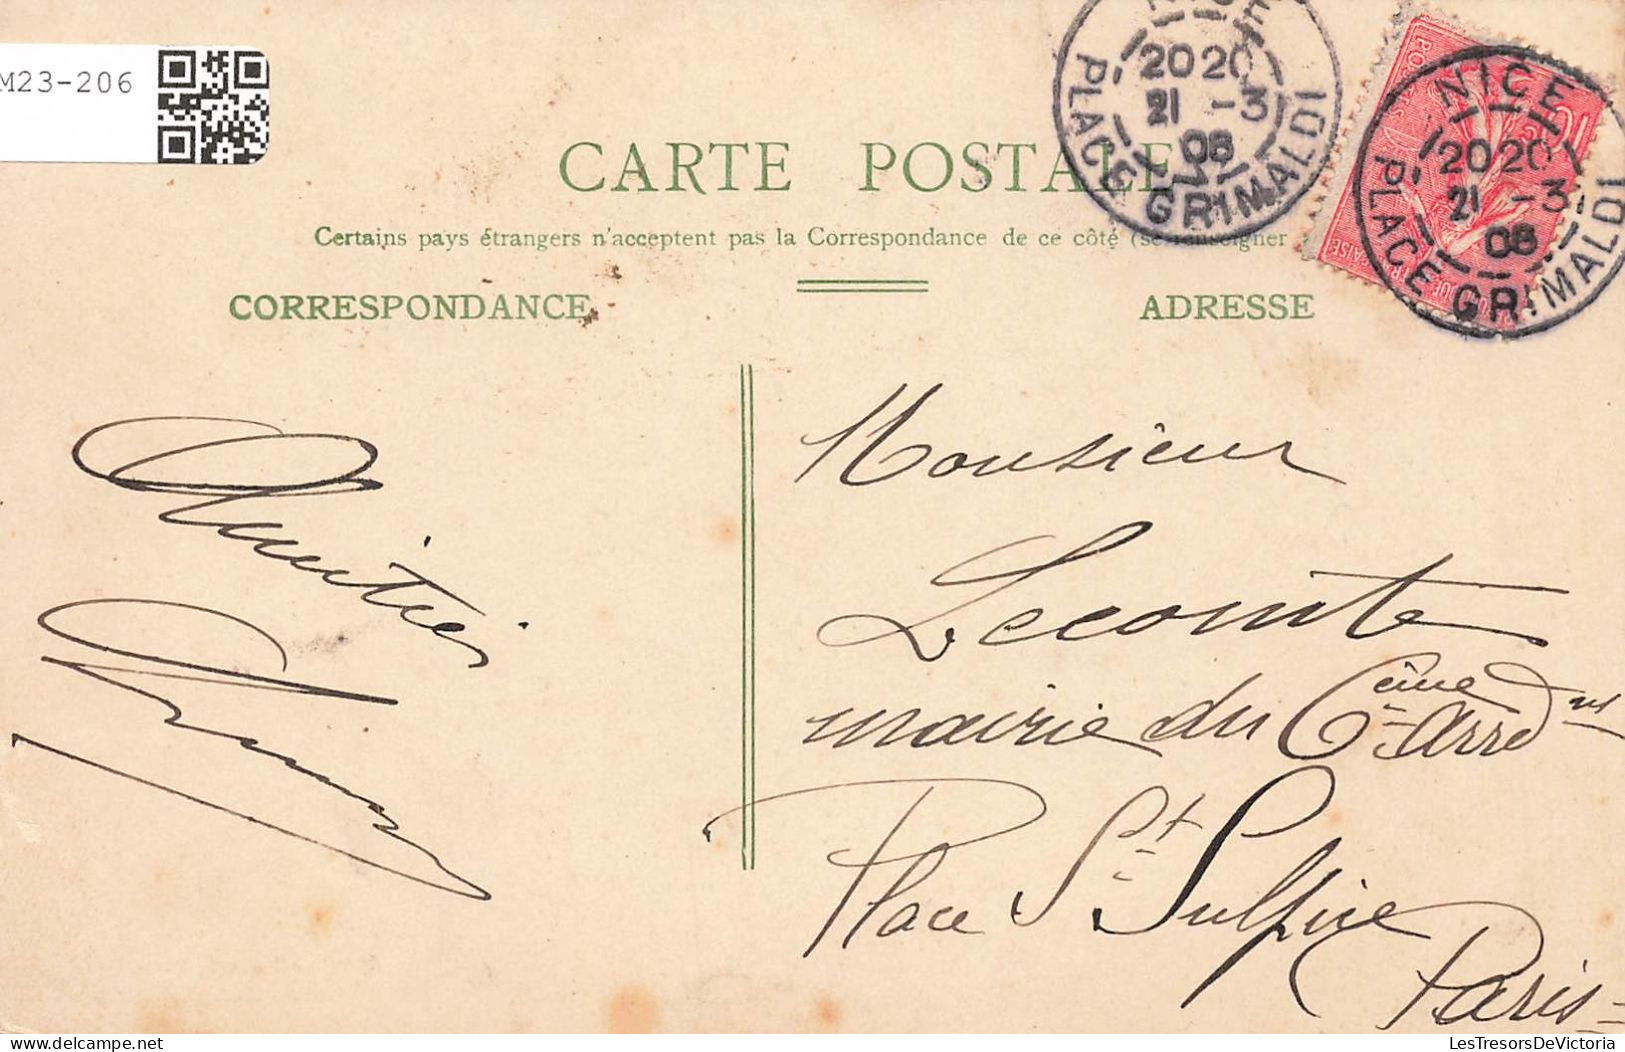 M23-206
NICE
20 20
21 -3
08
PLACE GRIMALDI
NICE
20 20
21 -3
08
PLACE GRIMALDI
CARTE POSTALE
Certains pays étrangers n'acceptent pas la Correspondance de ce côté (se renseigner
CORRESPONDANCE
ADRESSE
Amitiés
Monsieur
Lecomte
mairie du 6ème Arrdnt
Place St Sulpice
Paris
LesTresorsDeVictoria